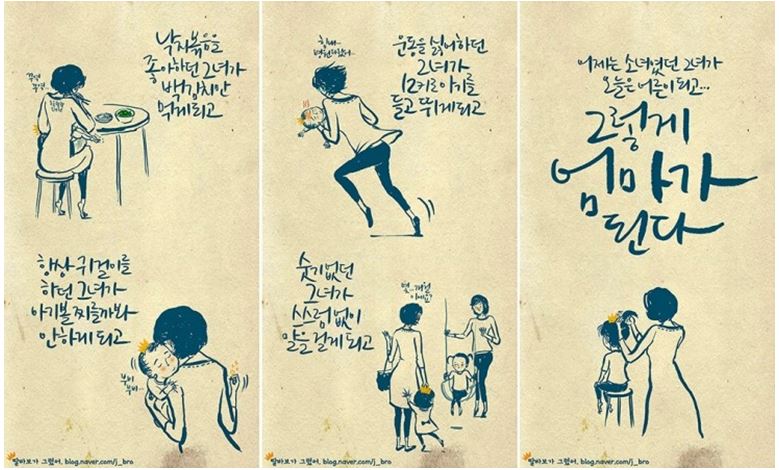 낙지볶음을
좋아하던 그녀가
백김치만
먹게되고
항상 귀걸이를
하던 그녀가
아기볼 찌를까봐
안하게 되고
부비
부비...
딸바보가 그렸어. blog.naver.com/j_bro
운동을 싫어하던
그녀가
12키로아기를
들고 뛰게되고
숫기없던
그녀가
스스럼없이
말을 걸게 되고
몇..개월
이에요?
딸바보가 그렸어. blog.naver.com/j_bro
어제는 소녀였던 그녀가
오늘은 어른이 되고...
그렇게
엄마가
된다
딸바보가 그렸어. blog.naver.com/j_bro